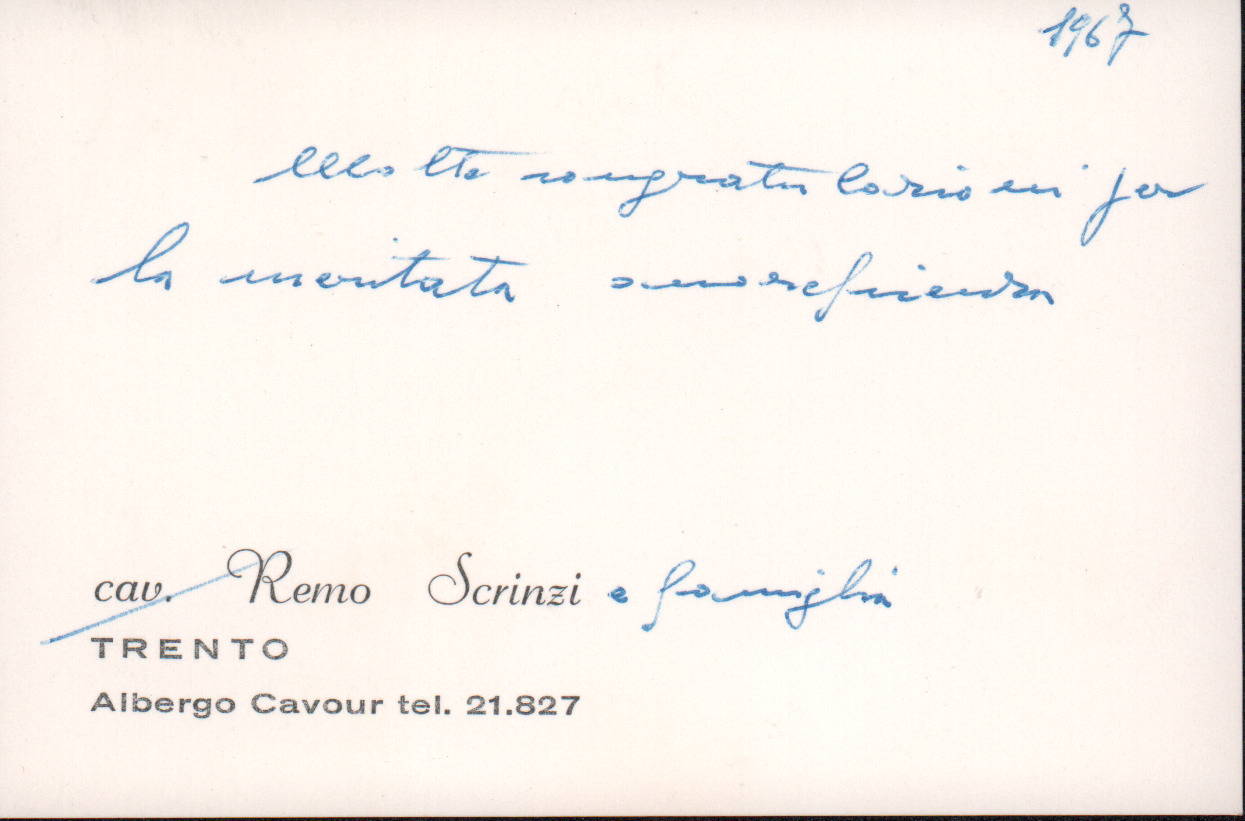 1967
Molte congratulazioni per
la meritata onoreficienza
cav. Remo Scrinzi e famiglia
TRENTO
Albergo Cavour tel. 21.827